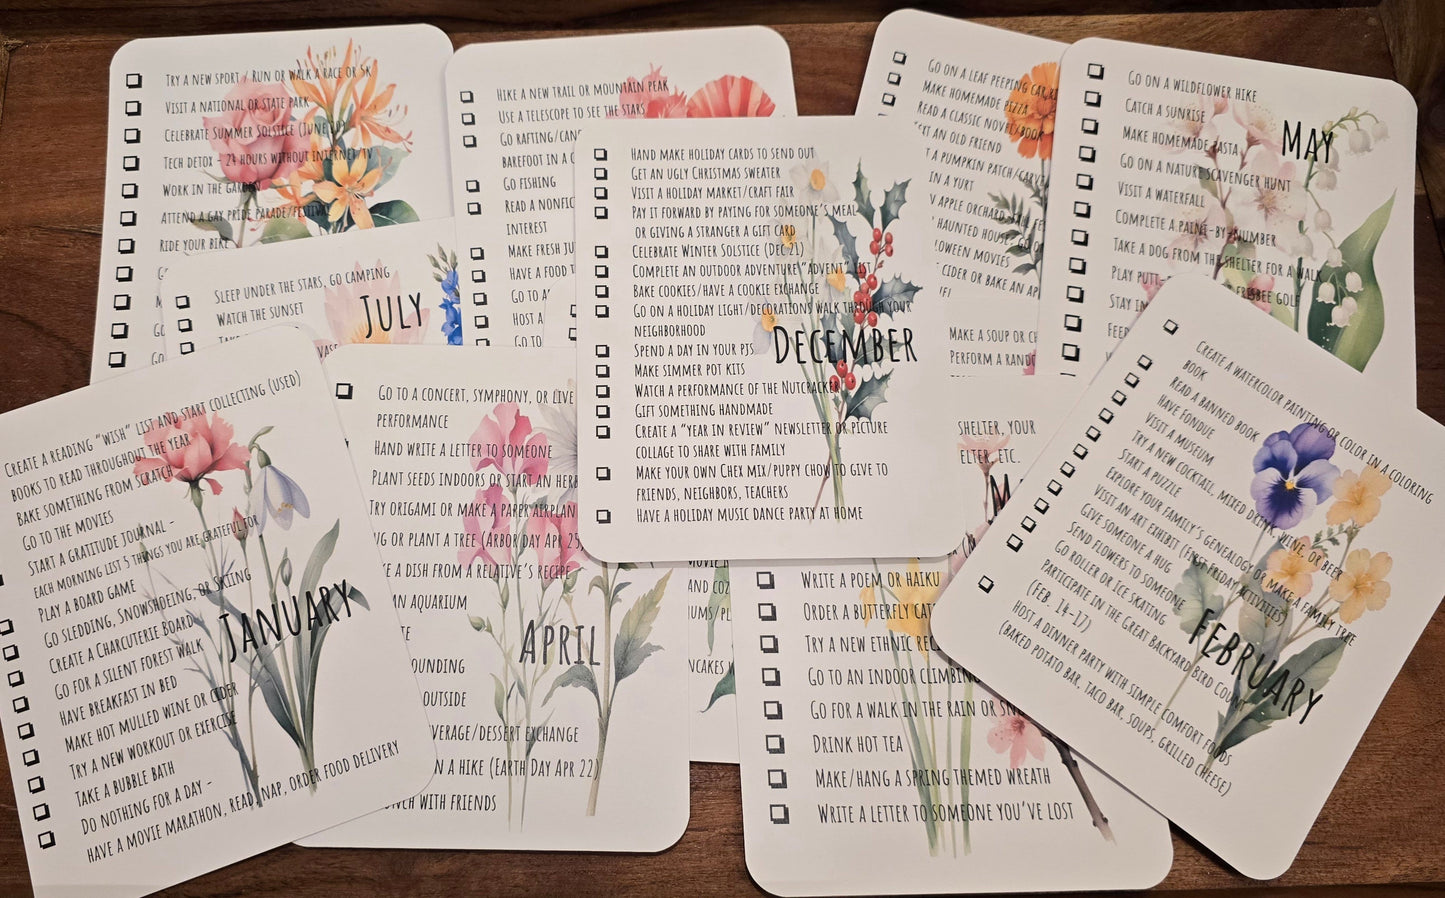 Try a new sport / Run or walk a race or 5k
Visit a national or state park
Celebrate Summer Solstice (June 20)
Tech detox - 24 hours without internet/tv
Work in the garden
Attend a gay pride parade/festival
Ride your bike
Hike a new trail or mountain peak
Use a telescope to see the stars
Go rafting/
barefoot in a
Go fishing
Read a
interest
Make fresh
Have a food
Go to
Host a
Go to
Go on a leaf peeping
Make homemade pizza
Read a classic novel/book
an old friend
a pumpkin patch/
in a yurt
apple orchard
haunted house
movies
cider or bake an
Make a soup or
Perform a
Go on a wildflower hike
Catch a sunrise
Make homemade pasta
Go on a nature scavenger hunt
Visit a waterfall
Complete a paint-by-number
Take a dog from the shelter for a walk
Play putt-
frisbee golf
Stay in
Feed
May
Sleep under the stars, go camping
Watch the sunset
July
Hand make holiday cards to send out
Get an ugly Christmas sweater
Visit a holiday market/craft fair
Pay it forward by paying for someone's meal
or giving a stranger a gift card
Celebrate Winter Solstice (Dec 21)
Complete an outdoor adventure "advent" list
Bake cookies/have a cookie exchange
Go on a holiday light/decorations walk through your
neighborhood
Spend a day in your pjs
Make simmer pot kits
Watch a performance of the Nutcracker
Gift something handmade
Create a "year in review" newsletter or picture
collage to share with family
Make your own Chex mix/puppy chow to give to
friends, neighbors, teachers
Have a holiday music dance party at home
December
Create a reading "wish" list and start collecting (used)
books to read throughout the year
Bake something from scratch
Go to the movies
Start a gratitude journal -
each morning list 5 things you are grateful for
Play a board game
Go sledding, snowshoeing, or skiing
Create a Charcuterie Board
Go for a silent forest walk
Have breakfast in bed
Make hot mulled wine or cider
Try a new workout or exercise
Take a bubble bath
Do nothing for a day -
have a movie marathon, read, nap, order food delivery
January
Go to a concert, symphony, or live
performance
Hand write a letter to someone
Plant seeds indoors or start an herb
Try origami or make a paper airplane
or plant a tree (Arbor day Apr 25)
a dish from a relative's recipe
an aquarium
outside
/dessert exchange
on a hike (Earth Day Apr 22)
with friends
April
shelter, your
etc.
Write a poem or haiku
Order a butterfly
Try a new ethnic
Go to an indoor climbing
Go for a walk in the rain or
Drink hot tea
Make/hang a spring themed wreath
Write a letter to someone you've lost
Create a watercolor painting or color in a coloring
book
Read a banned book
Have fondue
Visit a museum
Try a new cocktail, mixed drink, wine, or beer
Start a puzzle
Explore your family's genealogy or make a family tree
Visit an art exhibit (first Friday activities)
Give someone a hug
Send flowers to someone
Go roller or ice skating
Participate in the Great Backyard Bird Count
(Feb. 14-17)
Host a dinner party with simple comfort foods
(baked potato bar, taco bar, soups, grilled cheese)
February